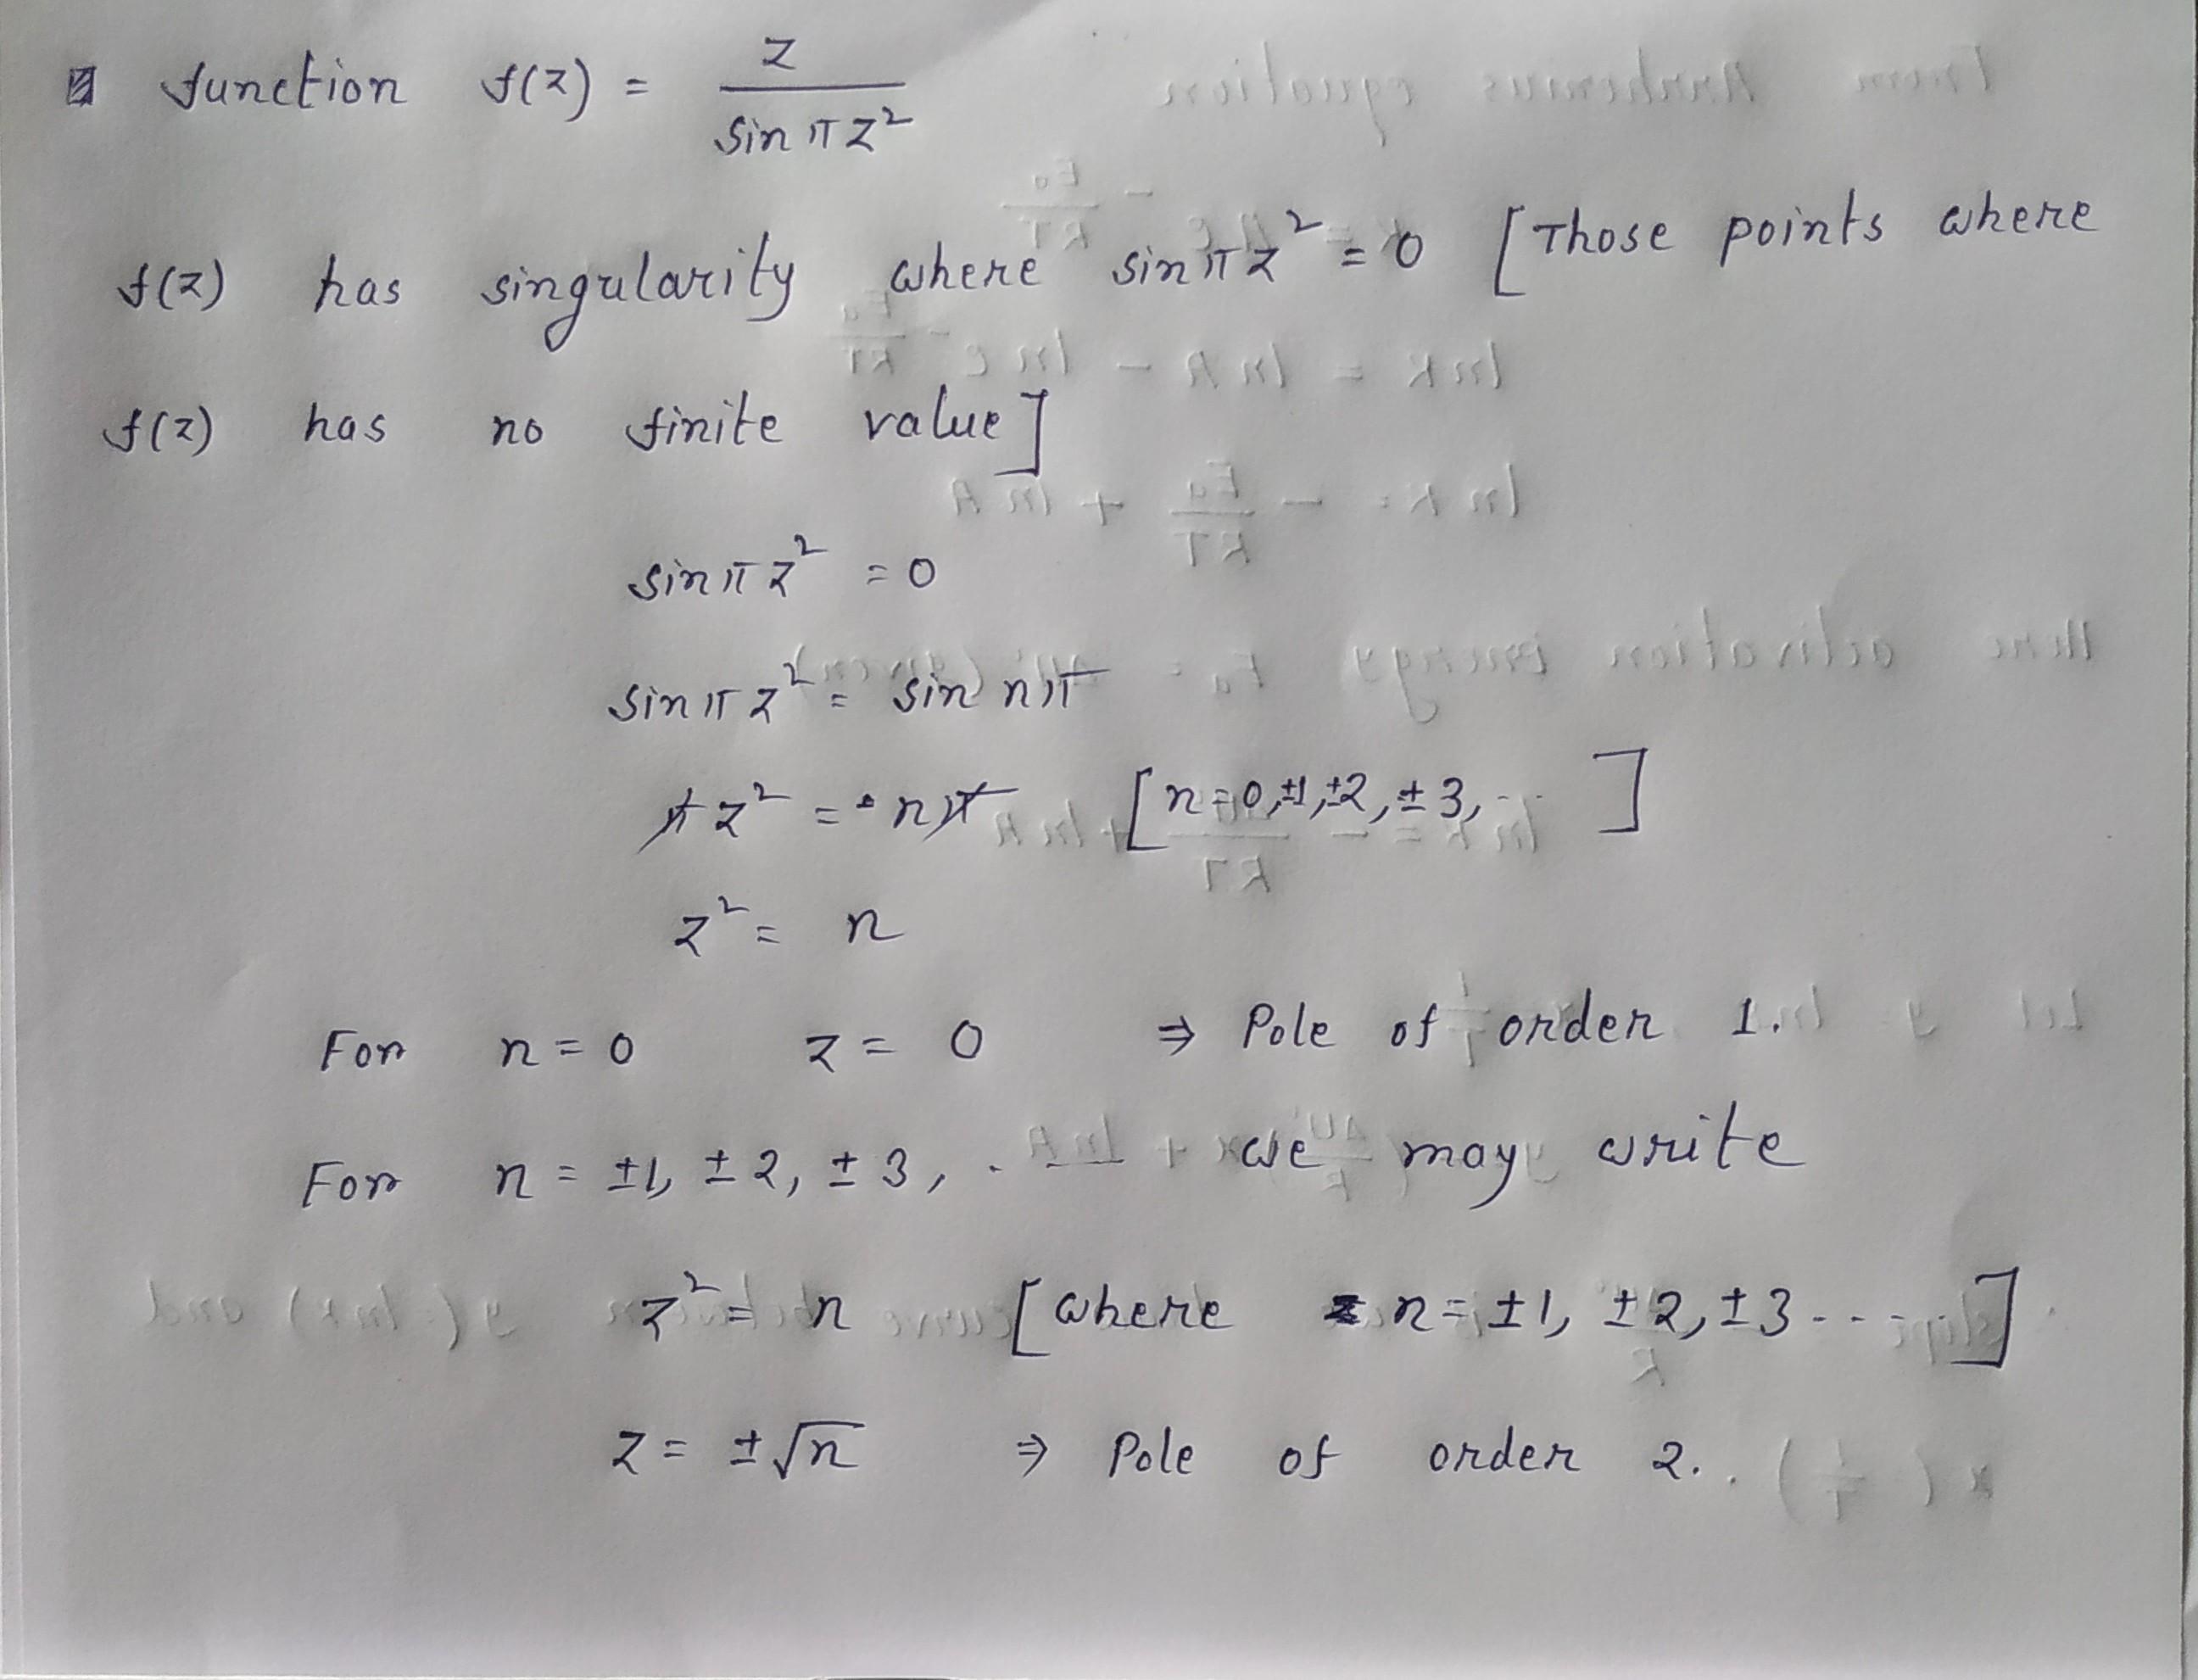 function f(z) = z / sin πz²
f(z) has singularity where sin πz² = 0 [Those points where
f(z) has no finite value]
sin πz² = 0
sin πz² = sin nπ
πz² = nπ [n=0,±1,±2,±3,-- ]
z² = n
For n = 0 z = 0 ⇒ Pole of order 1.
For n = ±1, ±2, ±3, . — we may write
z² = n [where n = ±1, ±2, ±3 - - - ]
z = ±√n ⇒ Pole of order 2.